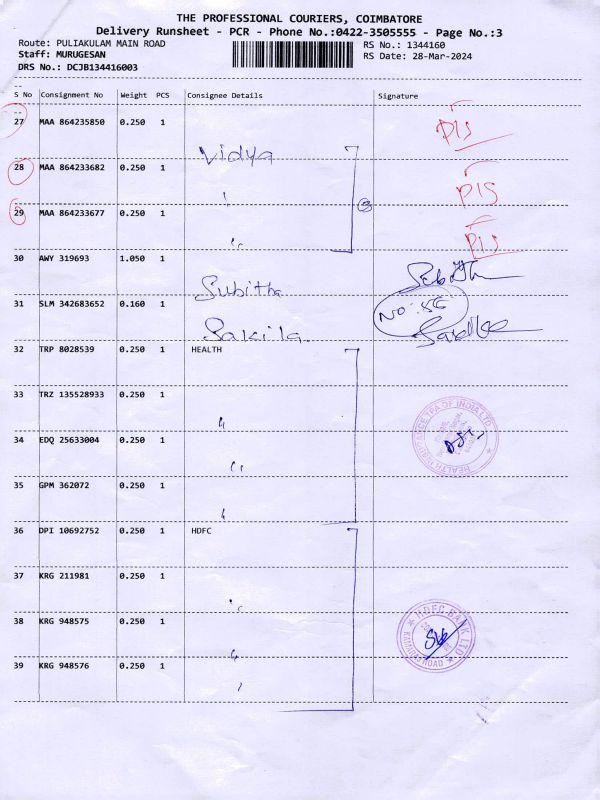 THE PROFESSIONAL COURIERS, COIMBATORE
Delivery Runsheet - PCR - Phone No.:0422-3505555 - Page No.:3
Route: PULIAKULAM MAIN ROAD
RS No.: 1344160
Staff: MURUGESAN
RS Date: 28-Mar-2024
DRS No.: DCJB134416003
S No Consignment No Weight PCS Consignee Details Signature
27 MAA 864235850 0.250 1
Vidya
28 MAA 864233682 0.250 1
29 MAA 864233677 0.250 1
30 AWY 319693 1.050 1
Subitha
31 SLM 342683652 0.160 1
Sakila
32 TRP 8028539 0.250 1 HEALTH
33 TRZ 135528933 0.250 1
34 EDQ 25633004 0.250 1
35 GPM 362072 0.250 1
36 DPI 10692752 0.250 1 HDFC
37 KRG 211981 0.250 1
38 KRG 948575 0.250 1
HDFC BANK LTD
39 KRG 948576 0.250 1